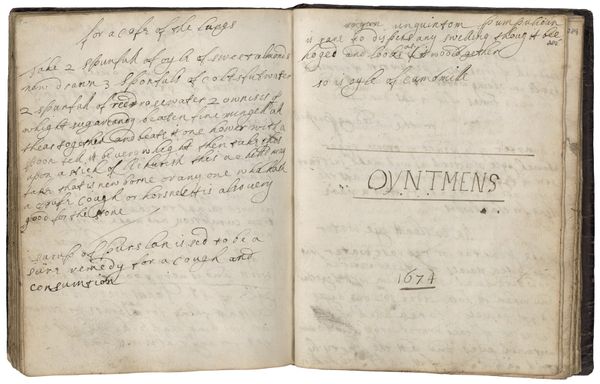 for a cofe of the lungs
Take 2 spunfull of oyle of sweet almonds
now drawn 3 sponfull of coltsfut water
2 spunfull of reed rose water 2 ownises of
whight sugar candy beaten fine minged all
theas together and beate it one hower with a
spoon tell it be very whight then take this
upon a stick of licturish this one held may
take that is new borne or any one who hath
a cough or horsnes It is also very
good for the stone
surup of purslan is sed to be a
sure remedy for a cough and
consumtion
unguintom pumpulion
is rare to dispers any swelling though bee
hoged and looke as it wood gether
so is oyle of camomill
OVNTMENS
1674